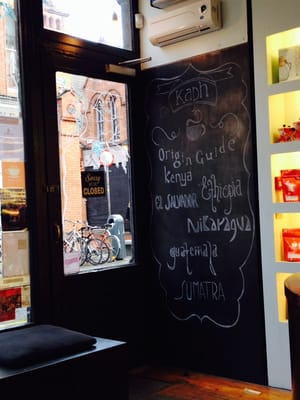 Kaph
Origin Guide
Kenya
Ethiopia
EL SALVADOR
NiKaragua
guatemala
SUMATRA
Sorry
WE'RE
CLOSED